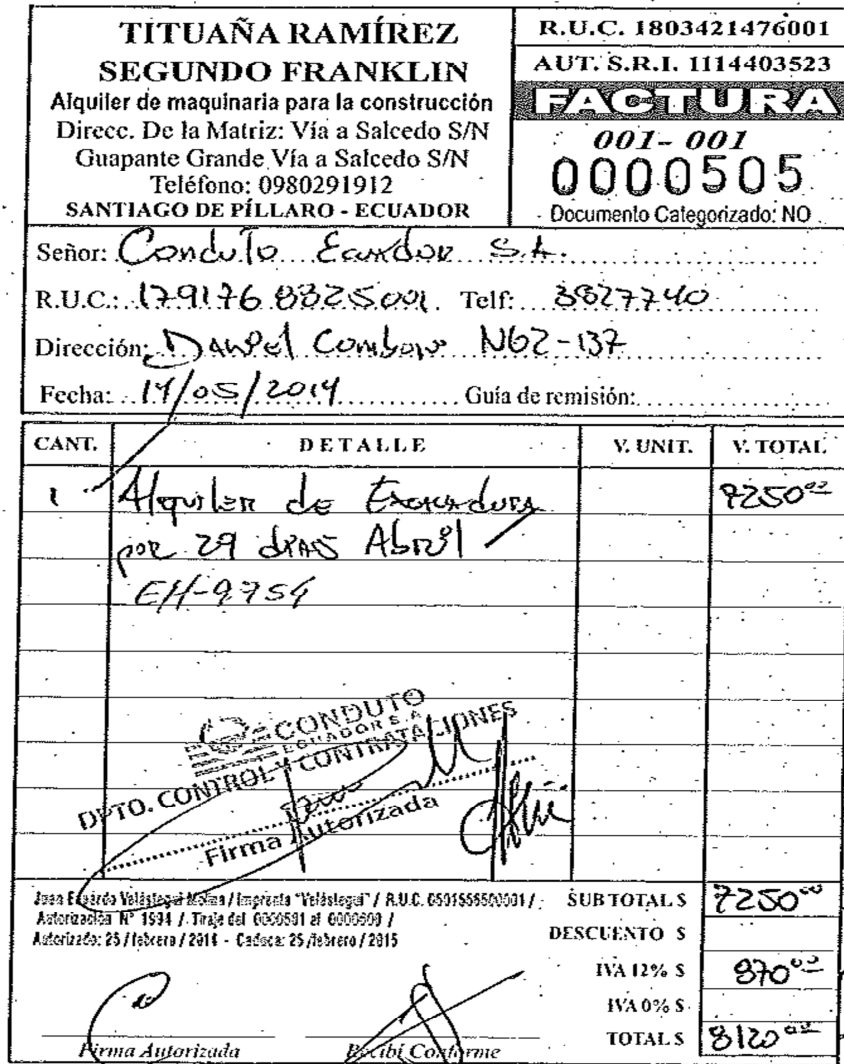 TITUAÑA RAMÍREZ
SEGUNDO FRANKLIN
Alquiler de maquinaria para la construcción
Direcc. De la Matriz: Vía a Salcedo S/N
Guapante Grande Vía a Salcedo S/N
Teléfono: 0980291912
SANTIAGO DE PÍLLARO - ECUADOR
R.U.C. 1803421476001
AUT. S.R.I. 1114403523
FACTURA
001-001
0000505
Documento Categorizado: NO
Señor: Conduto Ecuador S.A.
R.U.C.: 1791768325001 Telf: 3827740
Dirección: N62-137
Fecha: 14/05/2014 Guía de remisión:
CANT. DETALLE V. UNIT. V. TOTAL
1 Alquiler de Excavadora 7250.00
por 29 dias Abril
EH-9754
CONDUTO
ECUADOR S.A
DPTO. CONTROL Y CONTRATACIONES
Firma Autorizada
/ Imprenta "Velástegui" / R.U.C. /
Autorización N° 1594 / Tiraje del al /
Autorizado: 25 / febrero / 2014 - Caduca: 25 / febrero / 2015
SUBTOTAL $ 7250.00
DESCUENTO $
IVA 12% $ 870.00
IVA 0% $
TOTAL $ 8120.00
Firma Autorizada Recibí Conforme